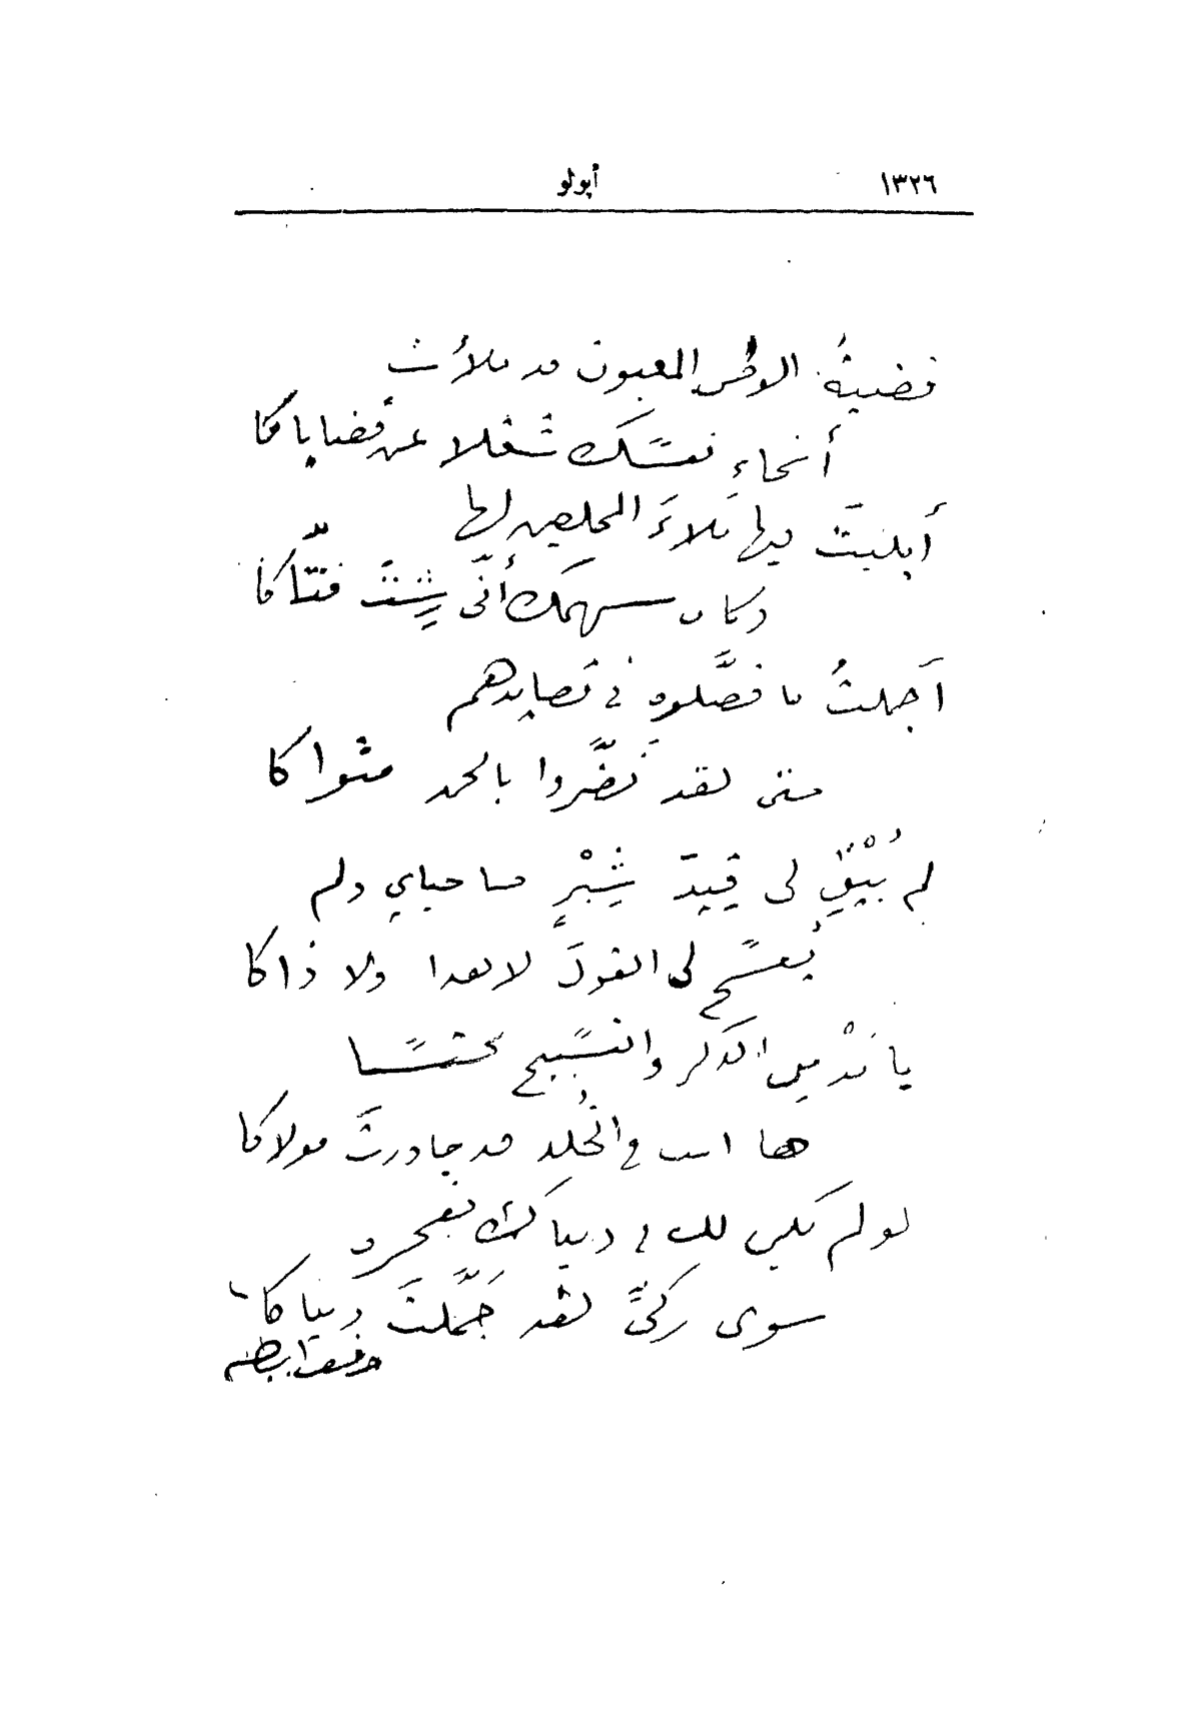 ١٣٢٦ أپولو
قضيةُ الوطن المغبون قد ملأت
أنحاءِ نفسَك شغلا عن قضاياكا
أبليتَ فيها بَلاءَ المخلصِ لها
وكان سهمك أنّى شِئتَ فتّاكا
أجملتُ ما فصَّلوه في قصايدهم
حتى لقد نَضَّروا بالحمد مثواكا
لم يُبْقِ لي قِيدَ شِبْرٍ صاحباي ولم
يفسَح لي القولَ لا هذا ولا ذاكا
يا مُدْمن الذكر والتسَبيح محتسَبا
ها أنت في الخُلد قد جاورتَ مولاكا
لو لم يكن لك في دنياك مفخرة
سوى زكيٍّ لقد جَمَّلتَ دنياكا
حافظ ابراهيم